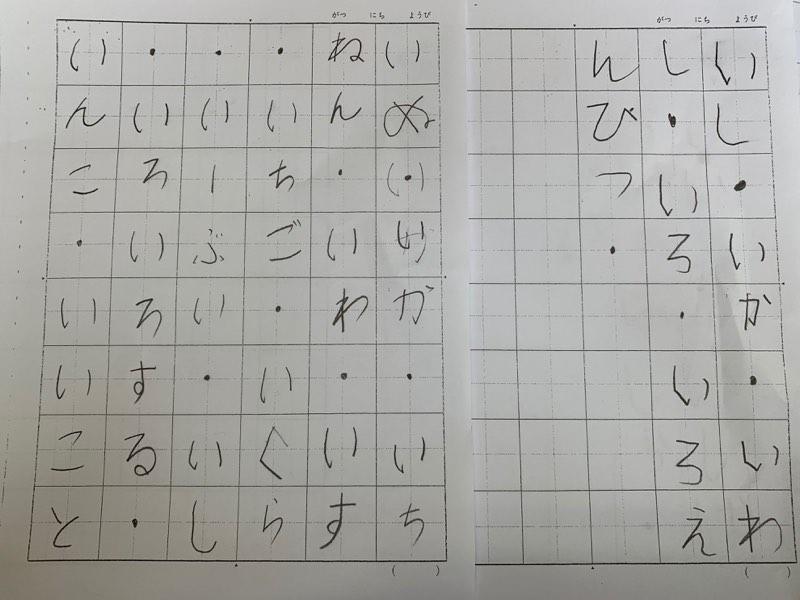 がつ にち ようび
いし・いか・いわ
し・いろ・いろえ
んぴつ・
がつ にち ようび
いぬ(・)が・いち
ねん・いわ・いす
・いちご・いくら
・いーぶい・いし
・いろいろする・
いんこ・いいこと
( )
( )